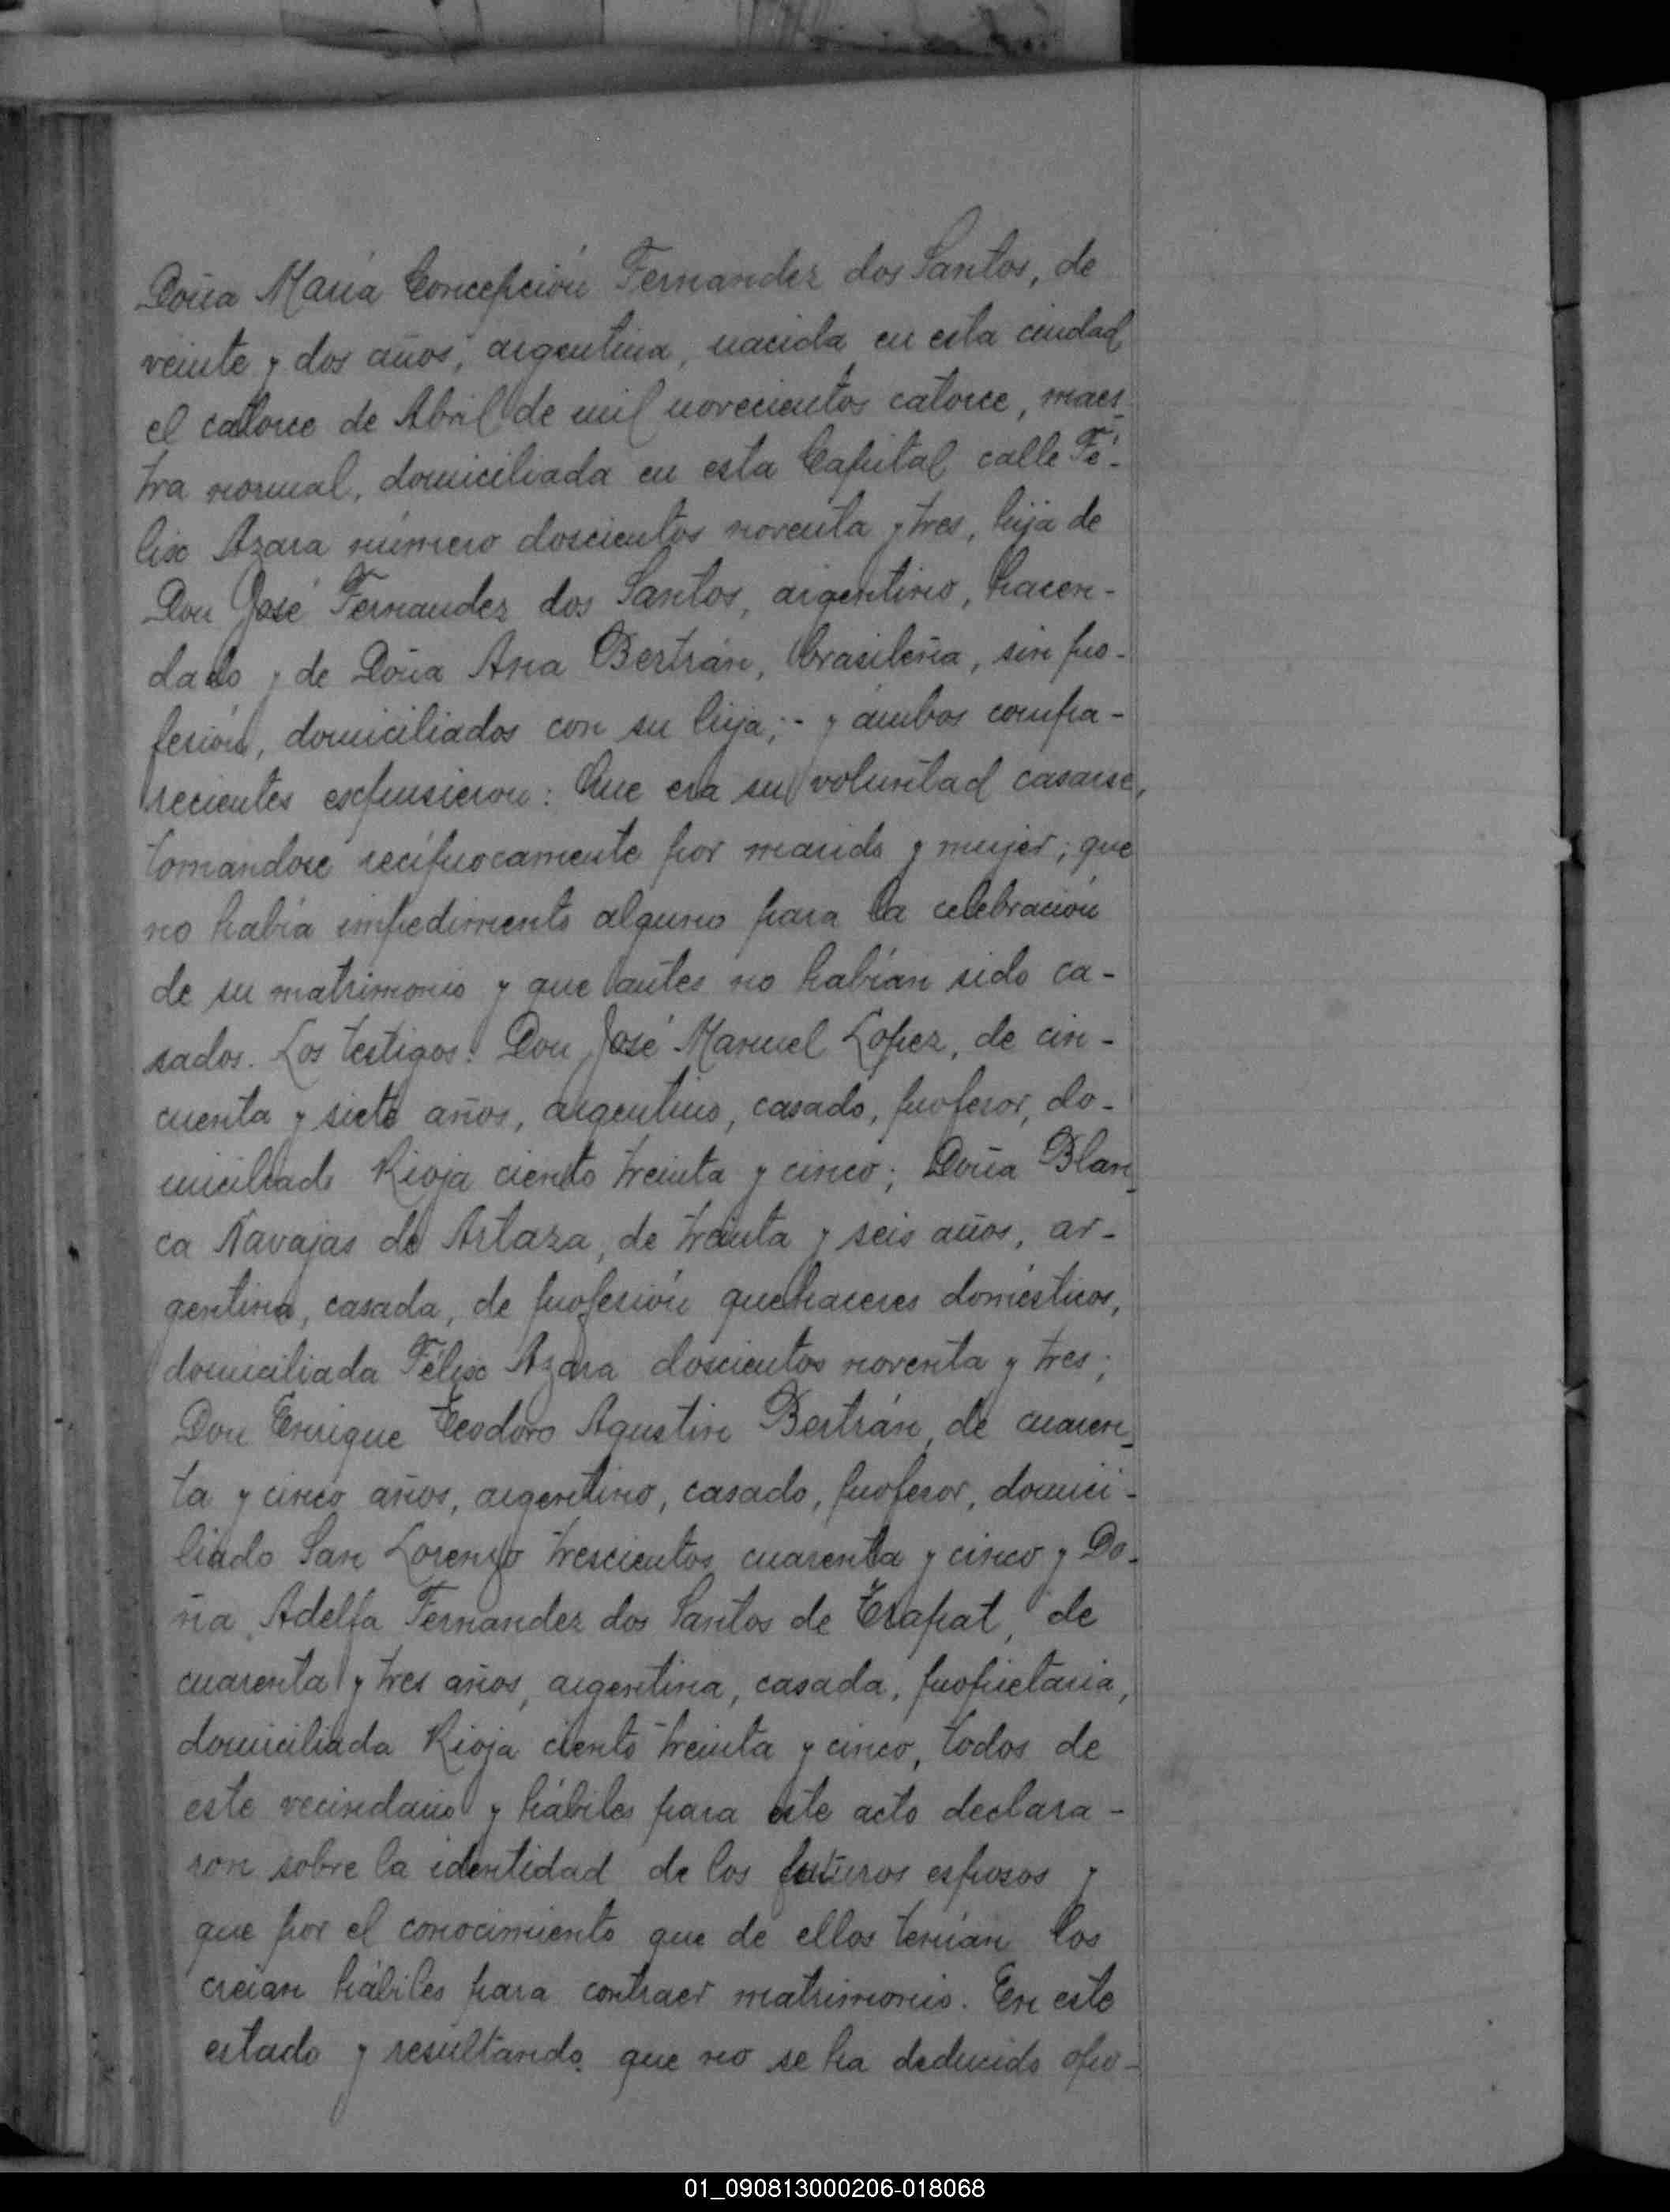 Doña María Concepción Fernandez dos Santos, de
veinte y dos años, argentina, nacida en esta ciudad
el catorce de Abril de mil novecientos catorce, maes_
tra normal, domiciliada en esta Capital calle Fé-
lix Azara número doscientos noventa y tres, hija de
Don José Fernandez dos Santos, argentino, hacen-
dado y de Doña Ana Bertrán, brasileña, sin pro-
fesión, domiciliados con su hija;- y ámbos compa-
recientes expusieron: Que era su voluntad casarse,
tomandose recíprocamente por marido y mujer; que
no había impedimento alguno para la celebración
de su matrimonio y que antes no habían sido ca-
sados. Los testigos: Don José Manuel López, de cin-
cuenta y siete años, argentino, casado, profesor, do-
miciliado Rioja ciento treinta y cinco; Doña Blan_
ca Navajas de Artaza, de treinta y seis años, ar-
gentina, casada, de profesión quehaceres domésticos,
domiciliada Félix Azara doscientos noventa y tres;
Don Enrique Teodoro Agustin Bertrán, de cuaren_
ta y cinco años, argentino, casado, profesor, domici-
liado San Lorenzo trescientos cuarenta y cinco y Do-
ña Adelfa Fernandez dos Santos de Trapat, de
cuarenta y tres años, argentina, casada, propietaria,
domiciliada Rioja ciento treinta y cinco, todos de
este vecindario y hábiles para este acto declara-
ron sobre la identidad de los futuros esposos y
que por el conocimiento que de ellos tenían los
creían hábiles para contraer matrimonio. En este
estado y resultando que no se ha deducido opo-
01_090813000206-018068